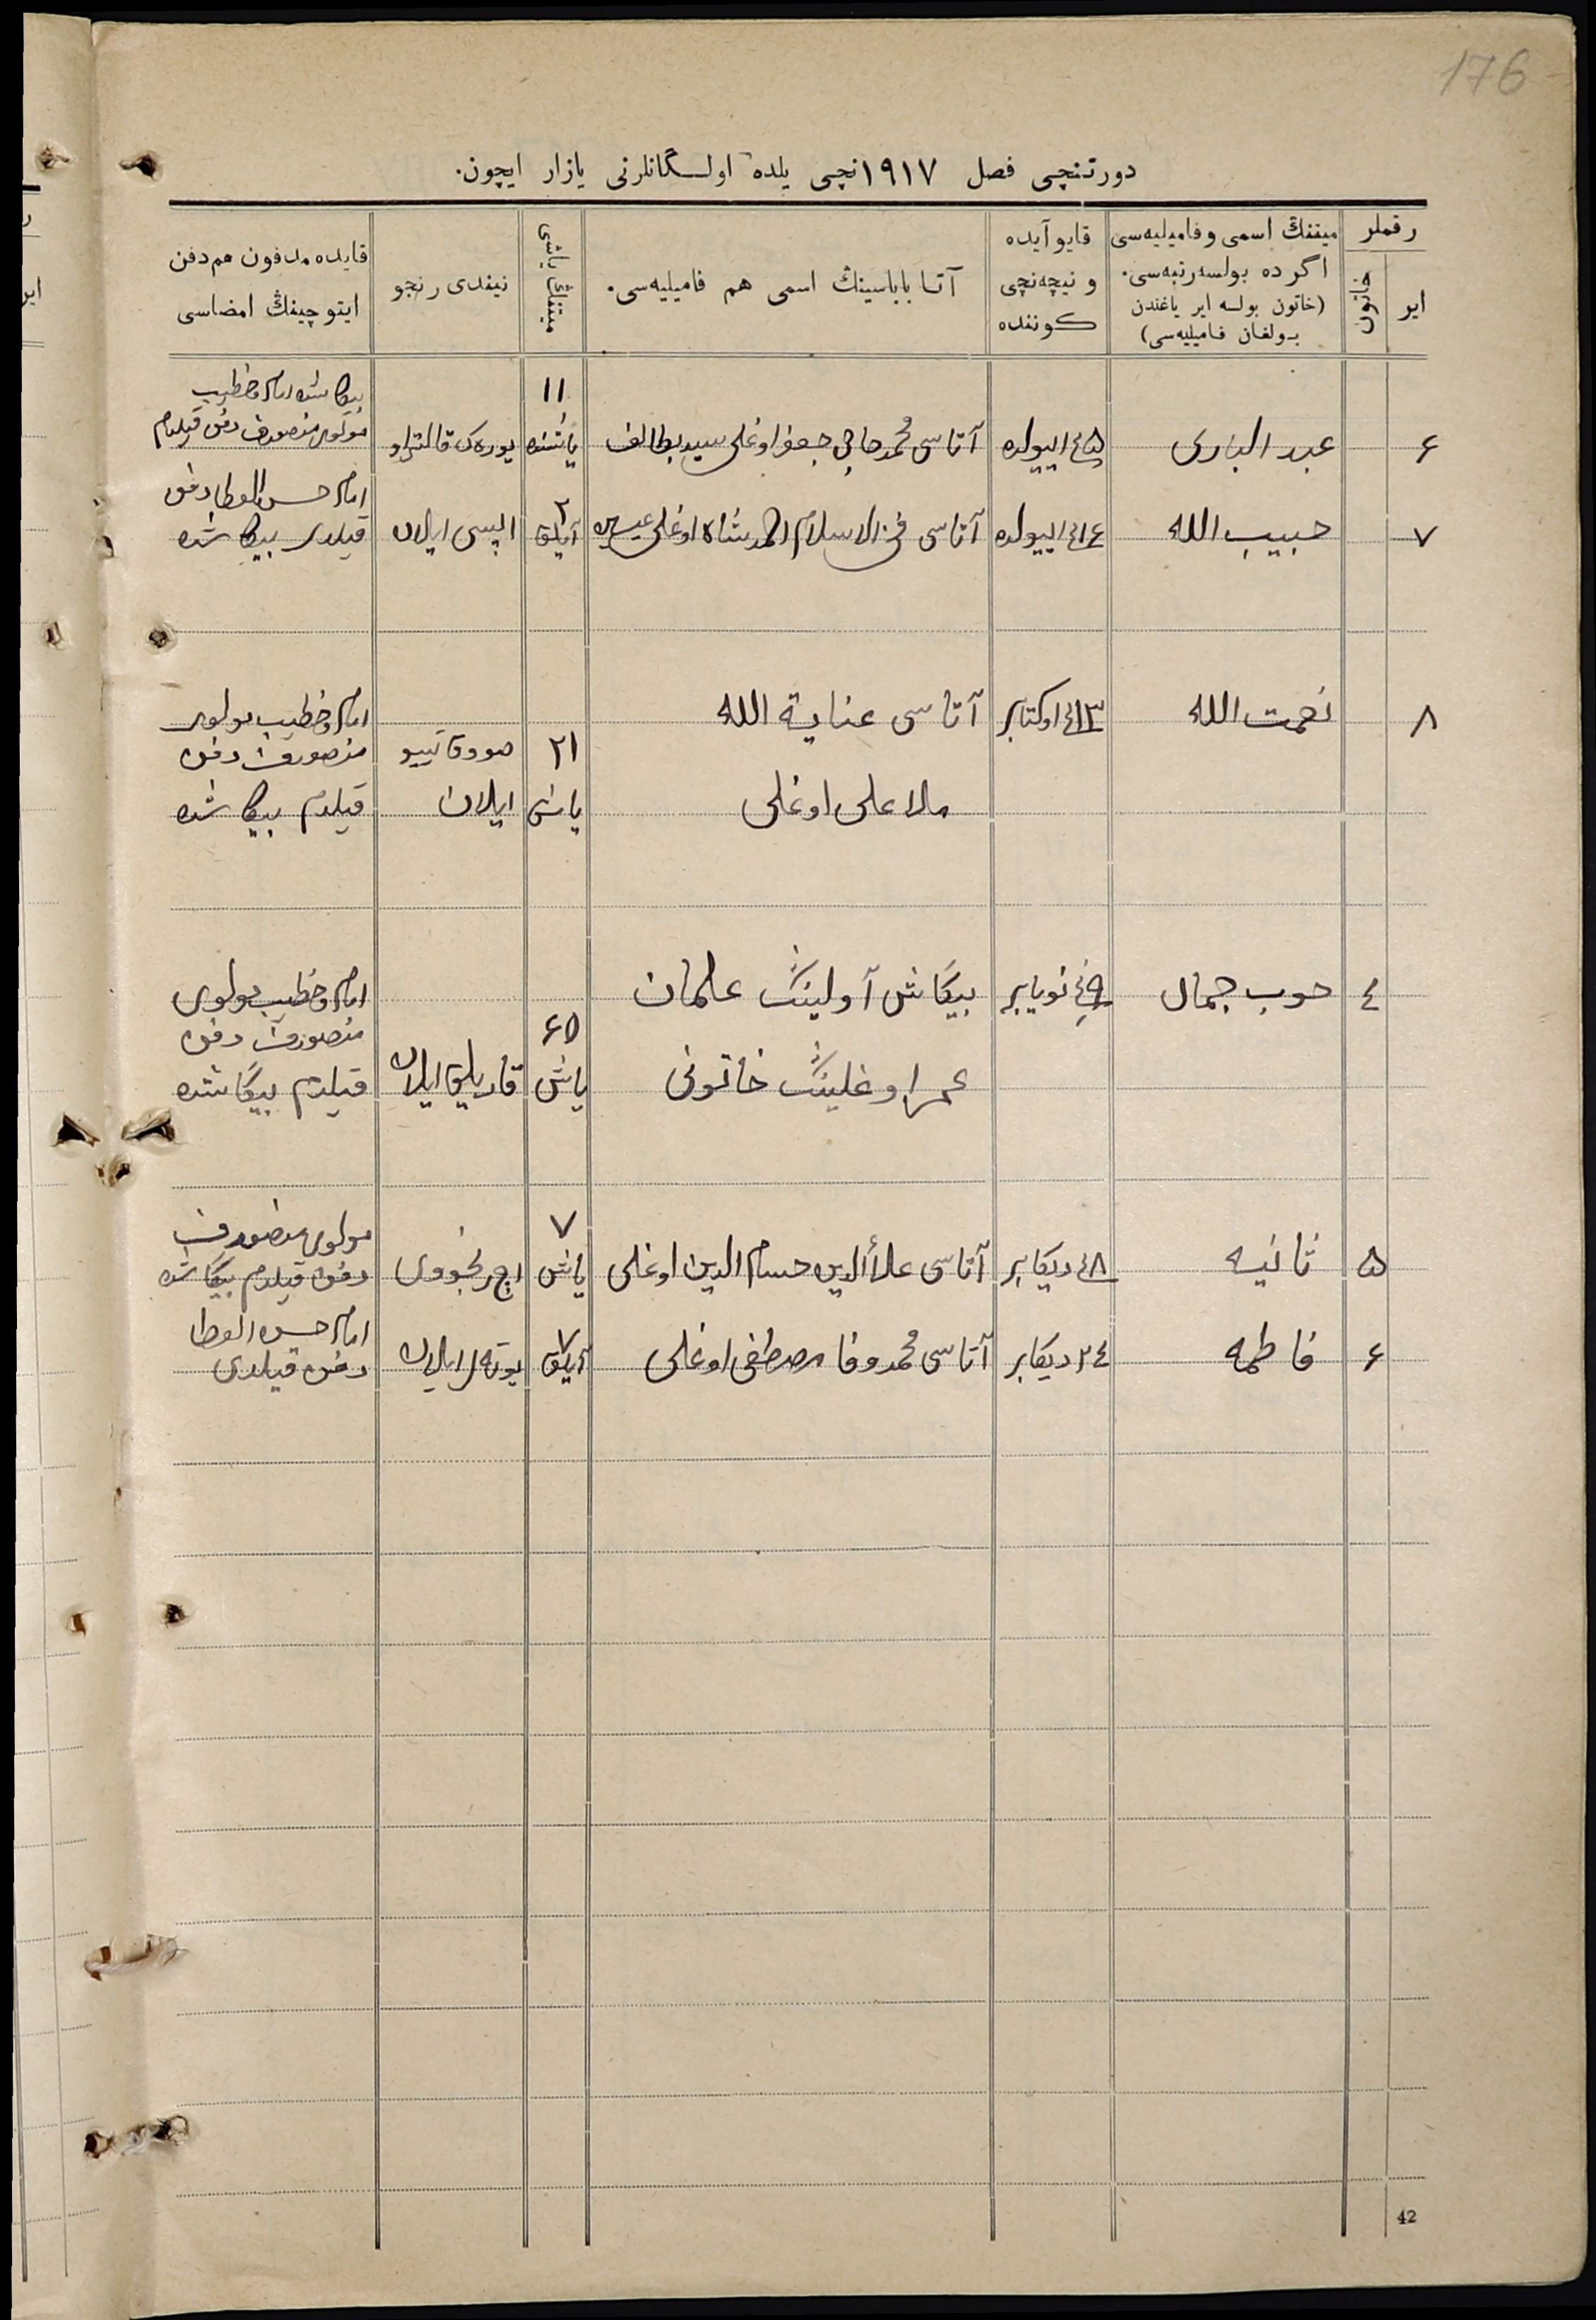 176
دورتنچی فصل ١٩١٧نچی یلده اولـگانلرنی یازار ایچون.
رقملر
ایر
خاتون
میتنڭ اسمی وفامیلیه‌سی
اگر ده بولسه رتبه‌سی.
(خاتون بولسه ایر یاغندن
بولغان فامیلیه‌سی)
قایو آیده
و نیچه‌نچی
کوننده
آتا باباسینڭ اسمی هم فامیلیه‌سی.
میتنڭ یاشی
نیندی رنجو
قایده مدفون هم دفن
ایتوچینڭ امضاسی
۶
عبد الباری
آتاسی محمد حاجی جعفر اوغلی
١١
یاشنده
بیکاشده امام وخطیب
مولوی منصورف دفن قیلدم
٧
حبیب الله
آتاسی فخر الاسلام احمدشاه اوغلی
٢
آیلق
ایلان
امام حسن العطا دفن
قیلدی بیکاشده
٨
نعمت الله
١٣ اوکتابر
آتاسی عنایة الله
ملا علی اوغلی
٢١
یاش
ایلان
امام وخطیب مولوی
منصورف دفن
قیلدم بیکاشده
٤
حوب جمال
٩ نویابر
بیکاش آولینڭ علمان
عمر اوغلینڭ خاتونی
۶۵
یاش
قاریلق ایلان
امام وخطیب مولوی
منصورف دفن
قیلدم بیکاشده
۵
ثانیه
٨ دیکابر
آتاسی علاءالدین حسام الدین اوغلی
٧
یاش
مولوی منصورف
دفن قیلدم بیکاشده
۶
فاطمه
٢٤ دیکابر
آتاسی محمد وفا مصطفی اوغلی
٧
آیلق
یوتەل ایلان
امام حسن العطا
دفن قیلدی
42